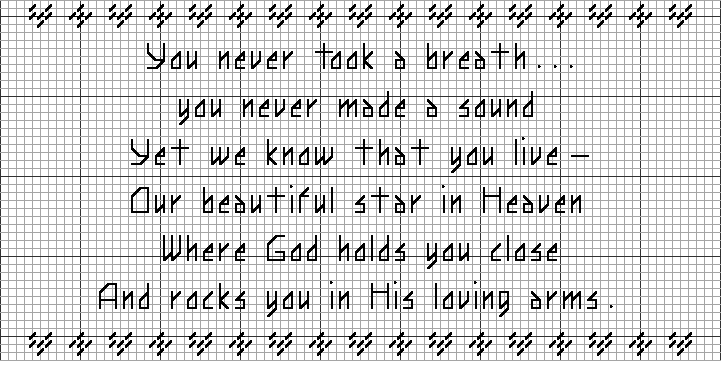 You never took a breath...
you never made a sound
Yet we know that you live –
Our beautiful star in Heaven
Where God holds you close
And rocks you in His loving arms.